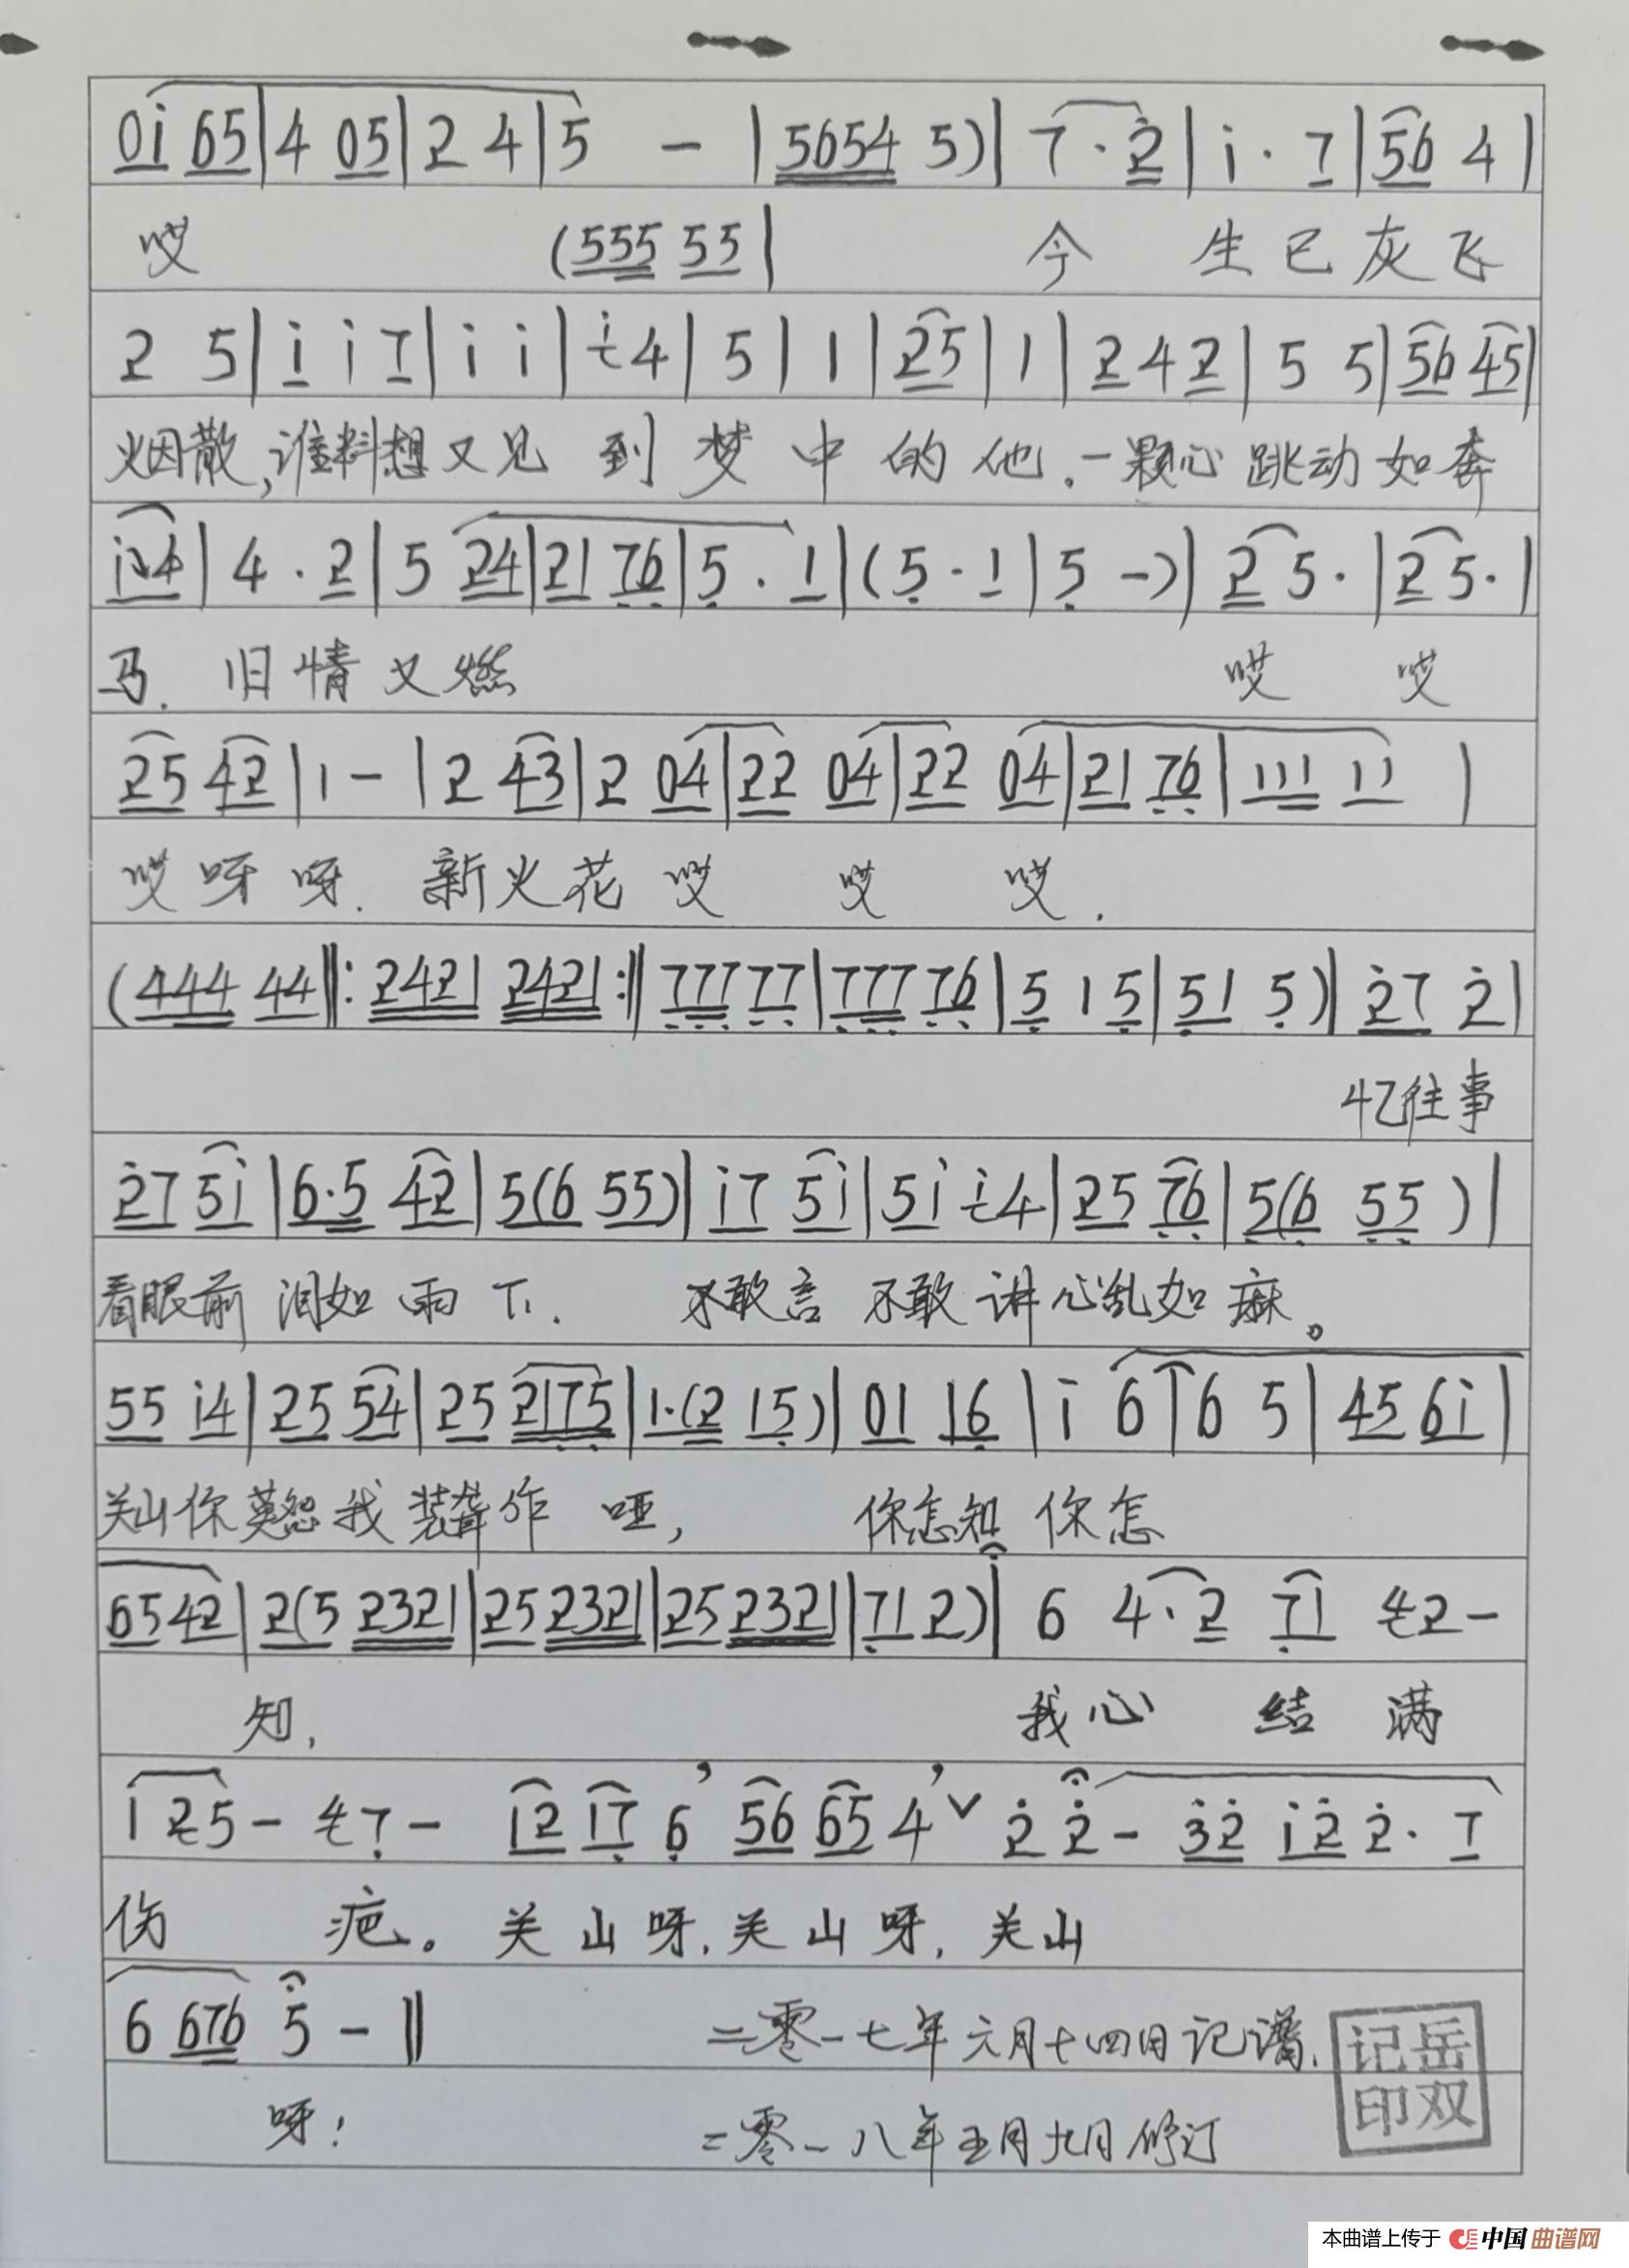 0i 65 | 4 05 | 2 4 | 5 - | 5654 5) | 7 · 2 | i · 7 | 56 4 |
哎 (555 55 | 今 生已灰飞
2 5 | i i 7 | i i | i 4 | 5 | 1 | 25 | 1 | 2 4 2 | 5 5 | 56 45 |
烟散,谁料想又见 到 梦 中 的 他.一颗心 跳动 如奔
i24 | 4 · 2 | 5 24 | 21 76 | 5 · 1 | (5 · 1 | 5 -) | 2 5 · | 2 5 · |
马. 旧情又燃 哎 哎
25 42 | 1 - | 2 43 | 2 04 | 22 04 | 22 04 | 21 76 | 111 11 |
哎呀呀. 新火花 哎 哎 哎.
(444 44 ‖: 2421 2421 :‖ 777 77 | 777 76 | 5 1 5 | 51 5) | 27 2 |
忆往事
27 5i | 6·5 42 | 5(6 55) | i7 5i | 5i i4 | 25 76 | 5(6 55) |
看眼前 泪如雨下. 不敢言 不敢讲心乱如麻。
55 i4 | 25 54 | 25 2175 | 1·(2 15) | 01 16 | i 6 | 6 5 | 45 6i |
关山你莫怨我装聋作 哑, 你怎知 你怎
6542 | 2(5 2321 | 25 2321 | 25 2321 | 71 2) | 6 4·2 71 2 -
知, 我心 结 满
1 25 - 7 - 12 17 6 ’ 56 65 4 ’ ∨ 2 2 - 32 i2 2 · 7
伤 疤。关山呀,关山呀,关山
6 676 5 - ‖ 二零一七年六月十四日记谱.
呀! 二零一八年五月九日修订
记岳
印双
本曲谱上传于 中国曲谱网